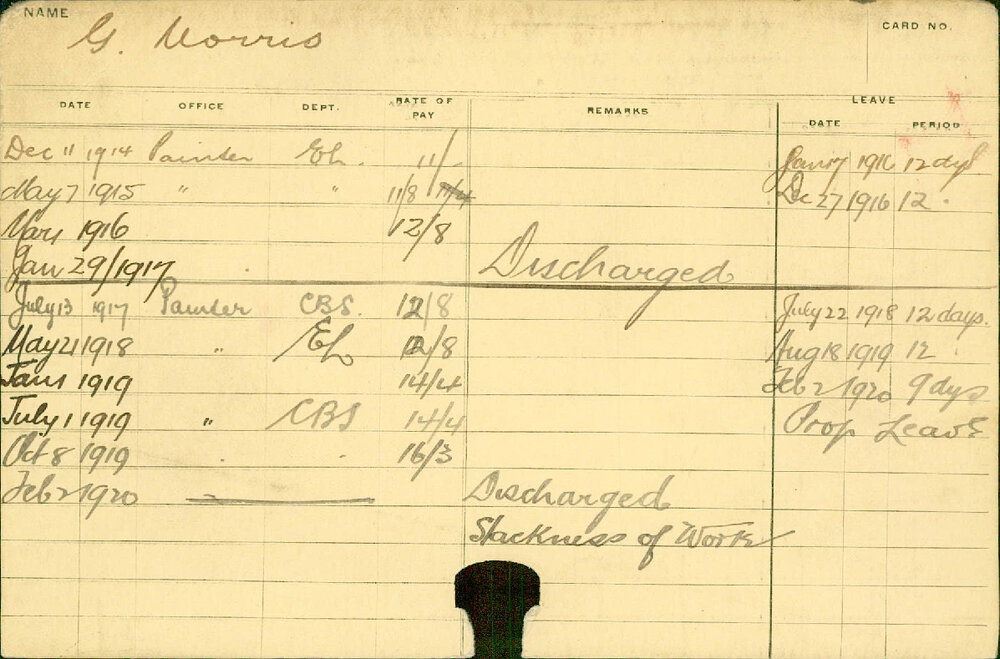 NAME
G. Morris
CARD NO.
DATE OFFICE DEPT. RATE OF PAY REMARKS LEAVE
DATE PERIOD
Dec 11 1914 Painter EL. 11/- Jan 17 1916 12 dys
May 7 1915 " " 11/8 11/4 Dec 27 1916 12 "
Mar 1 1916 12/8
Jan 29/1917 Discharged
July 13 1917 Painter CBS. 12/8 July 22 1918 12 days.
May 21 1918 " EL 12/8 Aug 18 1919 12 "
Jan 1 1919 14/4 Feb 2 1920 9 dys
July 1 1919 " CBS 14/4 Prop Leave
Oct 8 1919 " " 16/3
Feb 2 1920 Discharged
Slackness of Work